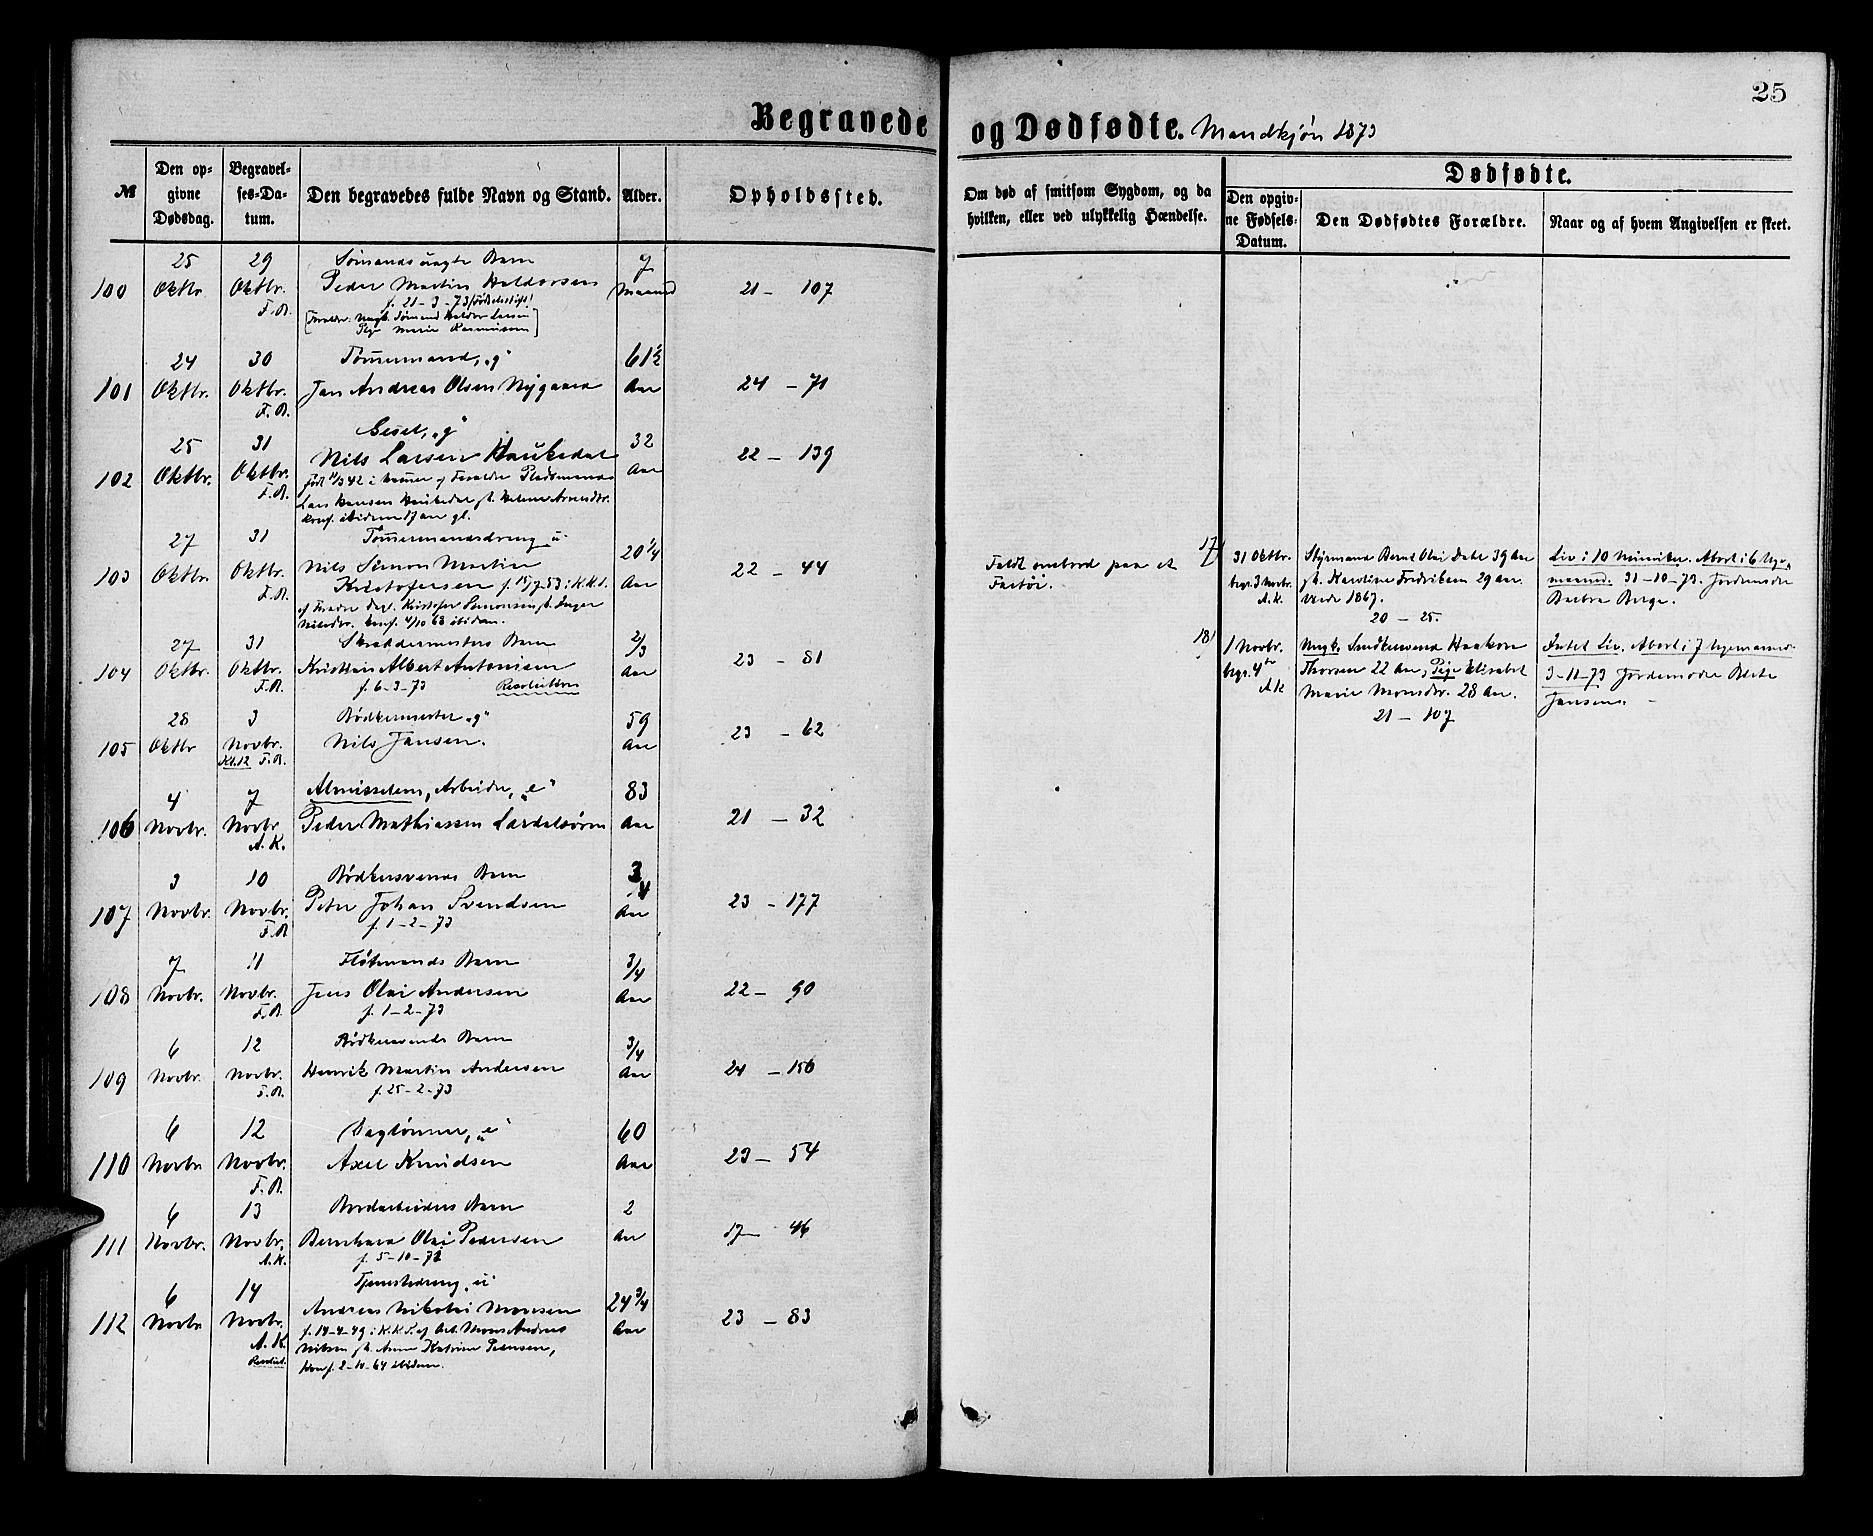 25
Begravede og Dødfødte. Mandkjøn 1873
№
Den opgivne Dødsdag.
Begravelses-Datum.
Den begravedes fulde Navn og Stand.
Alder.
Opholdssted.
Om død af smitsom Sygdom, og da hvilken, eller ved ulykkelig Hændelse.
Dødfødte.
Den opgivne Fødsels-Datum.
Den Dødfødtes Forældre.
Naar og af hvem Angivelsen er skeet.
100
25 Oktbr
29 Oktbr. F.R.
Sømands uægte Barn
Peder Martin Haldorsen
f. 21-3-73
Marie Rasmussen
7 Maaned
21 - 107
101
24 Oktbr.
30 Oktbr. F.R.
Tømmermand, „g"
Jan Andreas Olsen Nygaard
61½ Aar
24 - 71
102
25 Oktbr.
31 Oktbr. F.R.
Gesel, „g"
Nils Larsen Haukedal
Lars Hansen Haukedal
32 Aar
22 - 139
103
27 Oktbr.
31 Oktbr. F.R.
Tømmermandsdreng u
Nils Simon Martin
Kristofersen f. 15/7-53 i K.K.S.
20¼ Aar
22 - 44
Faldt ombord paa et
Fartøi.
104
27 Oktbr.
31 Oktbr. F.R.
Skreddermesters Barn
Kristian Albert Antonisen
f. 6-3-73
2/3 Aar
23 - 81
105
28 Oktbr
3 Novbr. Kl. 12 F.R.
Bødkermester „g"
Nils Jansen.
59 Aar
23 - 62
106
4 Novbr.
7 Novbr A.K.
Almisselem, Arbeider, „e"
Peder Mathiassen Lærdalsøren
83 Aar
21 - 32
107
3 Novbr.
10 Novbr. F.R
Bødkersvends Barn
Peter Johan Svendsen
f. 1-2-73
3/4 Aar
23 - 177
108
7 Novbr.
11 Novbr. F.R.
Fløtmands Barn
Jens Olai Andersen
f. 1-2-73
3/4 Aar
22 - 90
109
6 Novbr.
12 Novbr. F.R.
Bødkersvends Barn
Henrik Martin Andersen
f. 25-2-73
3/4 Aar
24 - 156
110
6 Novbr.
12 Novbr. F.R.
Dagtønner, „e"
Axel Knudsen
60 Aar
23 - 54
111
6 Novbr.
13 Novbr. A.K.
Jordarbeiders Barn
Bernhard Olai Pedersen
f. 5-10-71
2 Aar
17 - 46
112
6 Novbr
14 Novbr. A.K.
Tjenestedreng „u"
Andreas Nikolai Monsen
f. 14-4-49 i K.K.S. af Arb. Mons Andreas
Nilsen og h. Anne Katrine Pedersen,
Konf. 2-10-64 ibidem.
24 3/4 Aar
23 - 83
17
31 Oktbr. begr. 3 Novbr. A.K.
Styrmand Bernt Olai Dahl 39 Aar
og h. Karoline Fredriksen 29 Aar.
Viede 1867.
20 - 25.
Liv i 10 Minuter. Abort i 6 Uge-
maaned. 31-10-73. Jordemoder
Barbra Berge.
18
1 Novbr. begr. 4de A.K
Ungk. Smedsvend Haakon
Thorsen 22 Aar, Pige Elisabet
Marie Monsdtr. 28 Aar.
21 - 107
Intet Liv. Abort i 7 Ugemaaned.
3-11-73 Jordemoder Berte
Jansen.